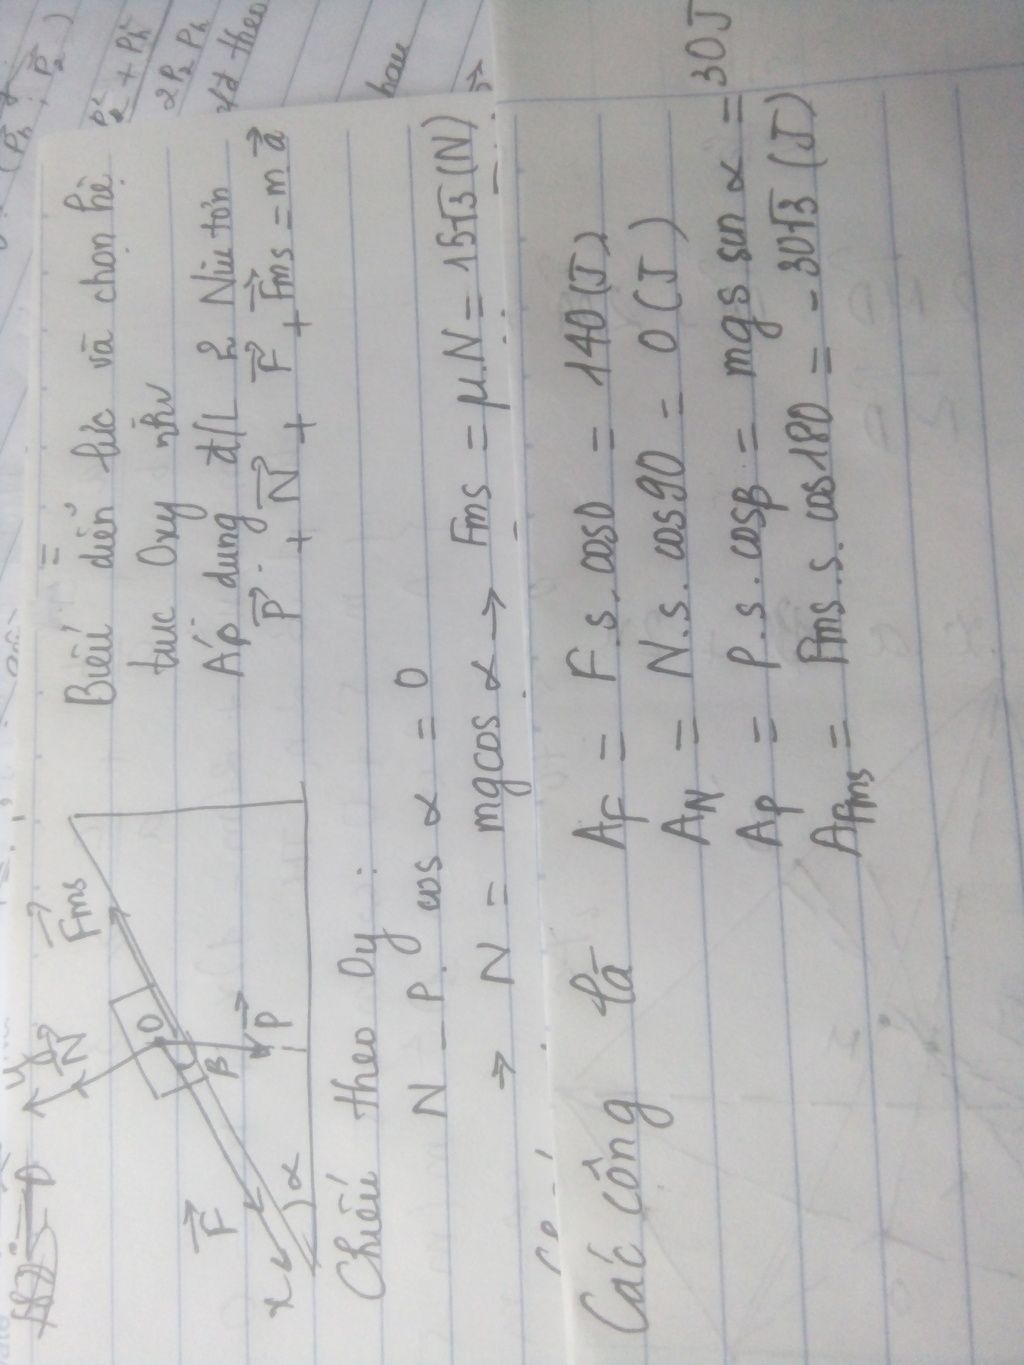 Biểu diễn lực và chọn hệ
trục Oxy như
Áp dụng đ/L 2 Niu tơn
P + N + F + Fms = m a
y
N
Fms
O
F
β
P
x
α
Chiếu theo Oy:
N - P. cos α = 0
→ N = mg cos α → Fms = μ.N = 15√3 (N)
Các công là
AF = F.s.cos0 = 140 (J)
AN = N.s.cos90 = 0 (J)
AP = P.s.cosβ = mgs sin α = 30J
AFms = Fms.s.cos180 = -30√3 (J)